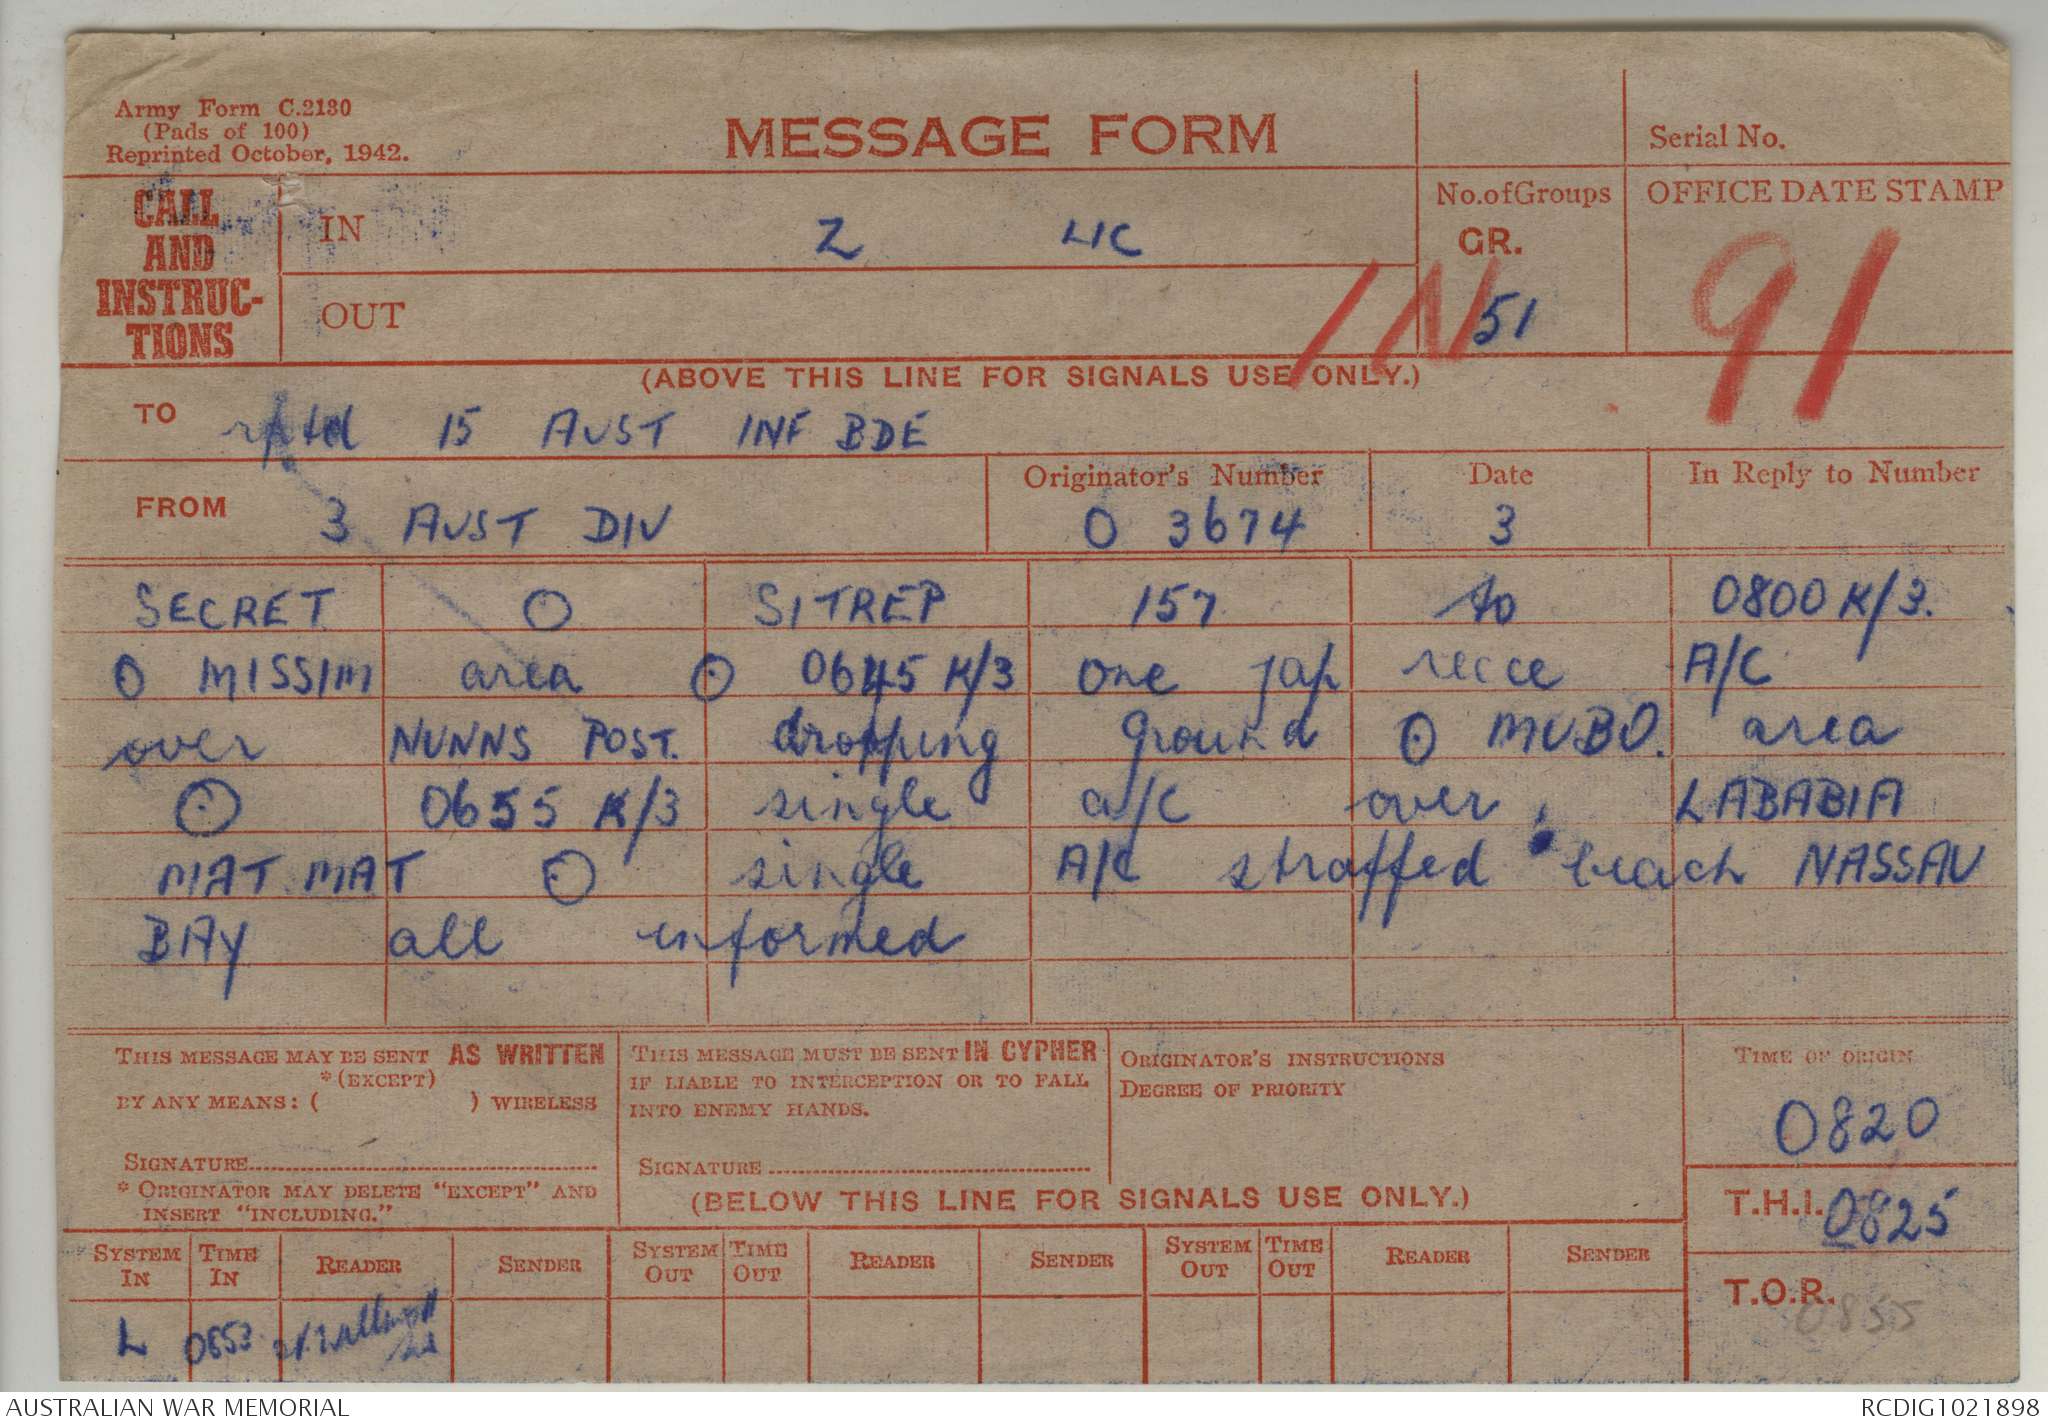 Army Form C.2130
(Pads of 100)
Reprinted October, 1942.
MESSAGE FORM
Serial No.
CALL
AND
INSTRUC-
TIONS
IN
Z 4IC
No. of Groups
GR.
51
OFFICE DATE STAMP
OUT
IN 91
(ABOVE THIS LINE FOR SIGNALS USE ONLY.)
TO
rptd 15 AUST INF BDE
FROM
3 AUST DIV
Originator's Number
O 3674
Date
3
In Reply to Number
SECRET ⊙ SITREP 157 to 0800 K/3.
⊙ MISSIM area ⊙ 0645 K/3 one jap recce A/C
over NUNNS POST. dropping ground ⊙ MUBO. area
⊙ 0655 K/3 single a/c over LABABIA
MAT MAT ⊙ single A/C straffed beach NASSAU
BAY all informed
THIS MESSAGE MAY BE SENT AS WRITTEN
*(EXCEPT)
BY ANY MEANS: ( ) WIRELESS
SIGNATURE
* ORIGINATOR MAY DELETE "EXCEPT" AND
INSERT "INCLUDING."
THIS MESSAGE MUST BE SENT IN CYPHER
IF LIABLE TO INTERCEPTION OR TO FALL
INTO ENEMY HANDS.
SIGNATURE
ORIGINATOR'S INSTRUCTIONS
DEGREE OF PRIORITY
TIME OF ORIGIN
0820
(BELOW THIS LINE FOR SIGNALS USE ONLY.)
T.H.I. 0825
SYSTEM IN TIME IN READER SENDER SYSTEM OUT TIME OUT READER SENDER SYSTEM OUT TIME OUT READER SENDER
T.O.R. 0855
L 0853
AUSTRALIAN WAR MEMORIAL
RCDIG1021898